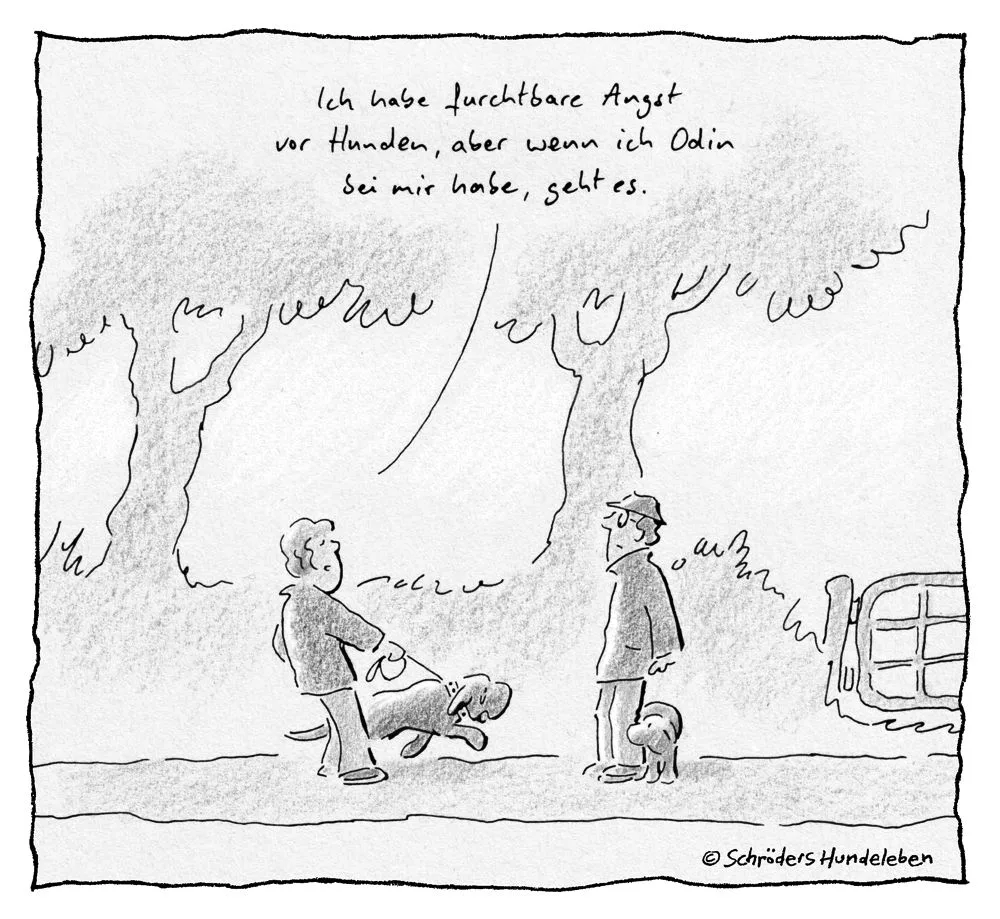 Ich habe furchtbare Angst
vor Hunden, aber wenn ich Odin
bei mir habe, geht es.
© Schröders Hundeleben